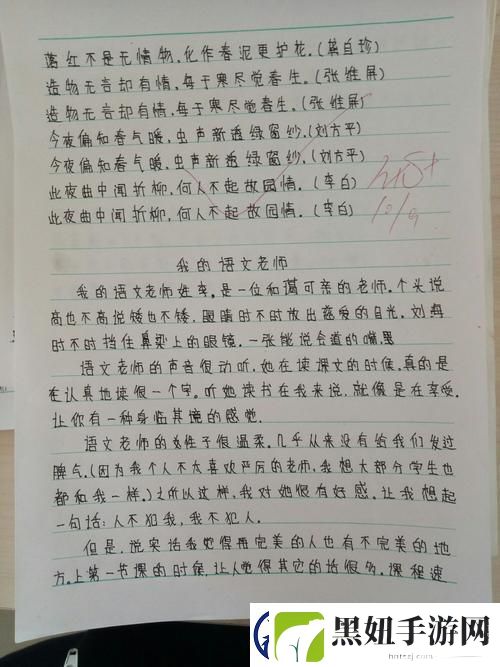 落红不是无情物,化作春泥更护花。(龚自珍)
造物无言却有情,每于寒尽觉春生。(张维屏)
造物无言却有情,每于寒尽觉春生。(张维屏)
今夜偏知春气暖,虫声新透绿窗纱。(刘方平)
今夜偏知春气暖,虫声新透绿窗纱。(刘方平)
此夜曲中闻折柳,何人不起故园情。(李白)
此夜曲中闻折柳,何人不起故园情。(李白)
我的语文老师
我的语文老师姓李。是一位和蔼可亲的老师。个头说
高也不高说矮也不矮,眼睛时不时放出慈爱的目光。刘海
时不时挡住鼻梁上的眼镜。一张能说会道的嘴
语文老师的声音很动听,她在读课文的时候,真的是
在认真地读很一个字。听她读书在我来说,就像是在享受。
让你有一种身临其境的感觉.
语文老师的性子很温柔。几乎从来没有给我们发过
脾气。(因为我个人不太喜欢严厉的老师,我想大部分学生也
都和我一样。)之所以这样,我对她很有好感。让我想起
一句话:人不犯我,我不犯人.
但是,说实话我觉得再完美的人也有不完美的地
方。上第一节课的时候,让人觉得其它的话很多。课程速
黑妞手游网